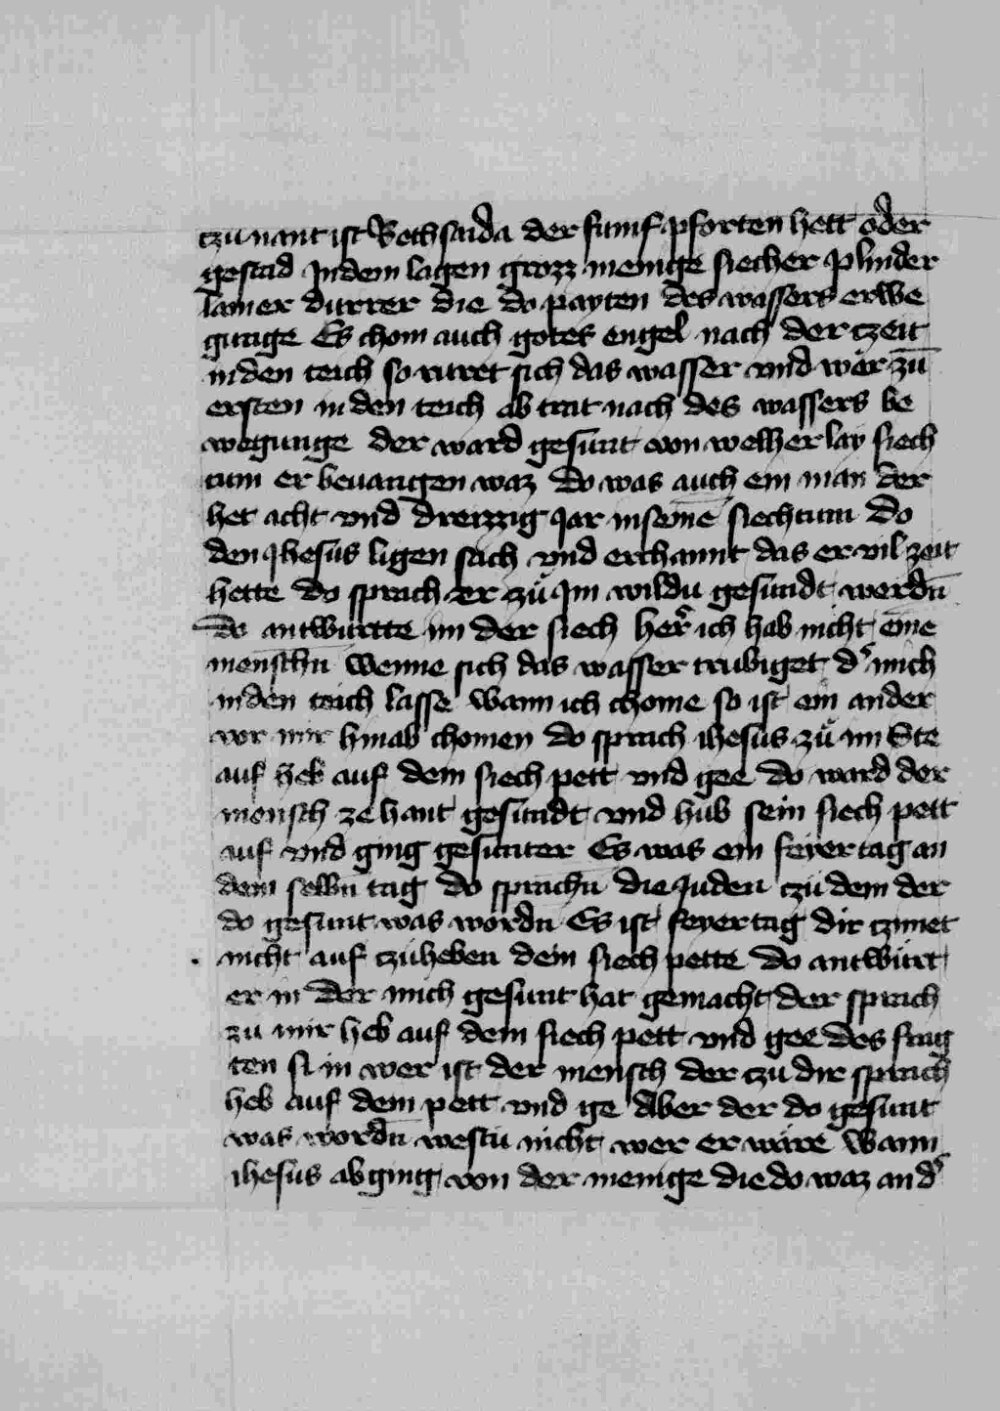 czu nant ist Bethsaida der fumf pforten hett oder
gestad Jndem lagen grozz menige siecher plinder
lamer durrer die do payten des wassers erwe
gunge Es chom auch gotes engel nach der czeit
inden teich so ruret sich das wasser vnd wer zū
ersten in den teich ab trat nach des wassers be
wegunge der ward gesunt von welherlay siech
tum er beuangen waz Do was auch ein man der
het acht vnd dreizzig Jar inseinē siechtum Do
den Jhesus ligen sach vnd erchannt das er vil zeit
hette do sprach er zů Jm wildu gesundt werdn̄
Do antwurtte im der siech her̄ ich hab nicht eine
menschn̄ wenne sich das wasser trubiget d' mich
inden teich lasse wann ich chome so ist ein ander
vor mir hinab chomen do sprach ihesus zů im Ste
auf heb auf dein siech pett vnd gee do ward der
mensch ze hant gesundt vnd hub sein siech pett
auf vnd ging gesunter Es was ein feyertag an
dem selbn̄ tag do sprachn̄ die Juden czu dem der
do gesunt was wordn̄ Es ist feyertag dir czimet
nicht auf czuheben dein siech pette do antwurt
er in Der mich gesunt hat gemacht der sprach
zu mir heb auf dein siech pett vnd gee des frag
ten si in wer ist der mensch der czu dir sprach
heb auf dein pett vnd ge Aber der do gesunt
was wordn̄ westu nicht wer er wäre wann
ihesus abging von der menige die do waz an d'